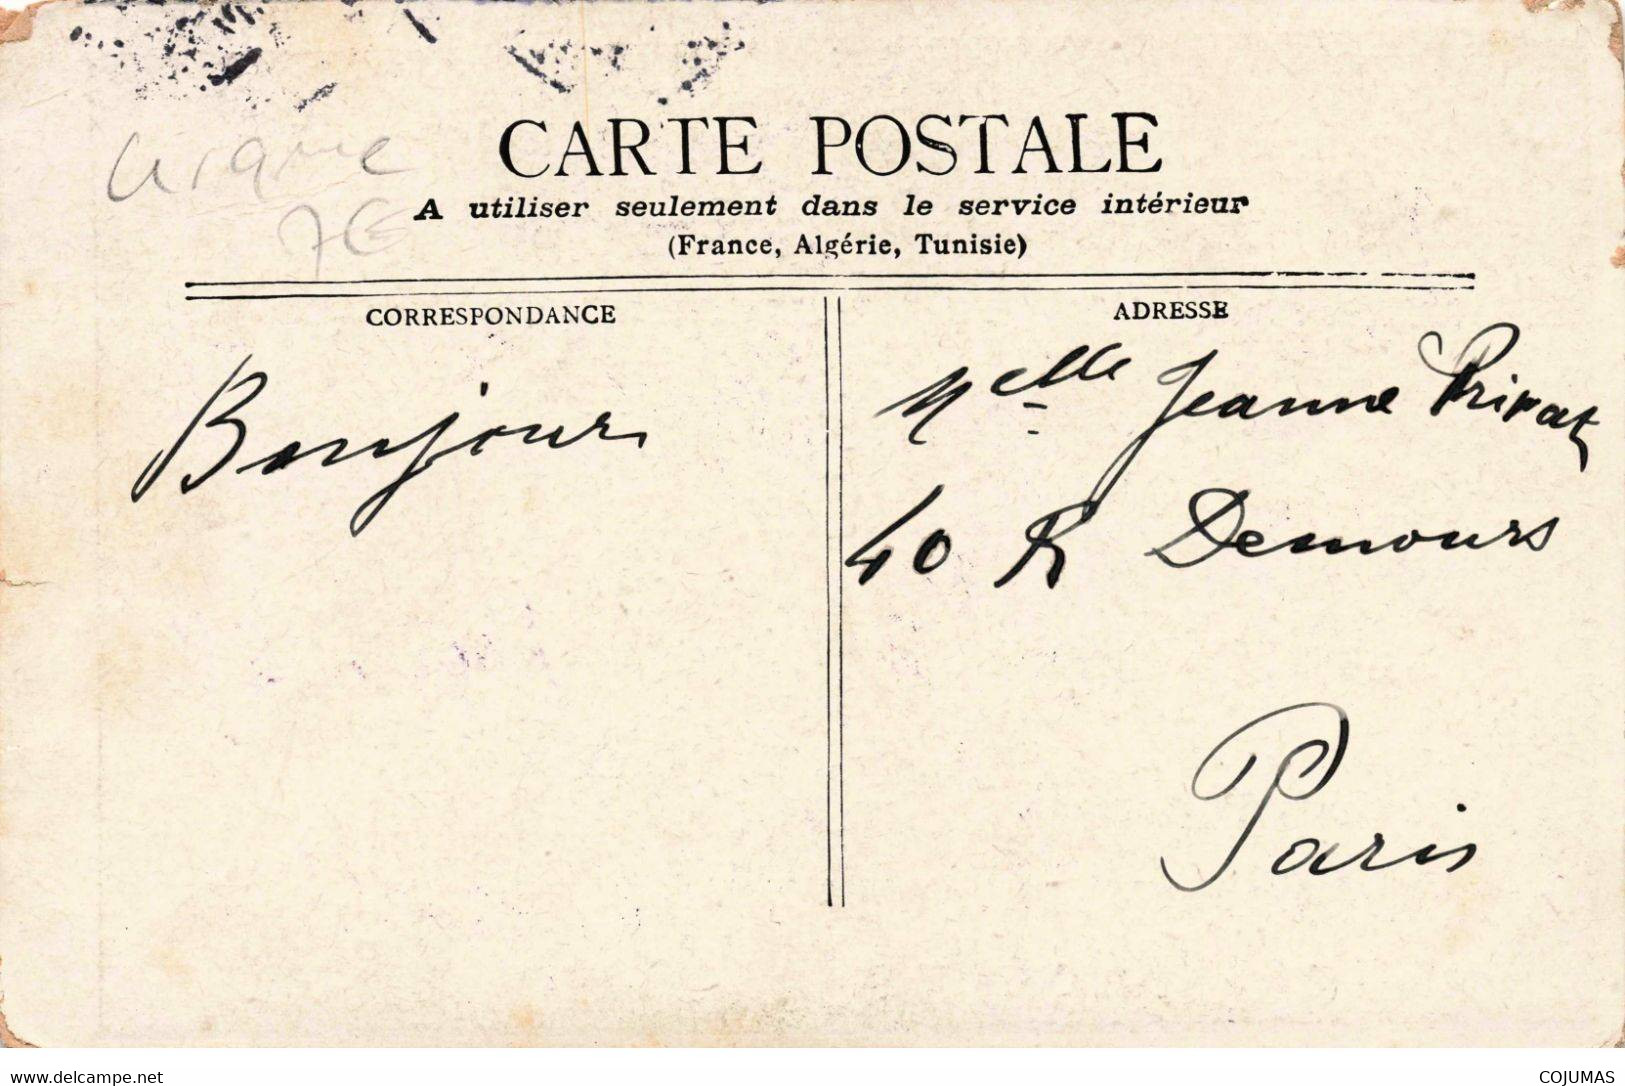 cirque
7€
CARTE POSTALE
A utiliser seulement dans le service intérieur
(France, Algérie, Tunisie)
CORRESPONDANCE
ADRESSE
Bonjour
Melle Jeanne Privat
40 R Demours
Paris
www.delcampe.net
COJUMAS